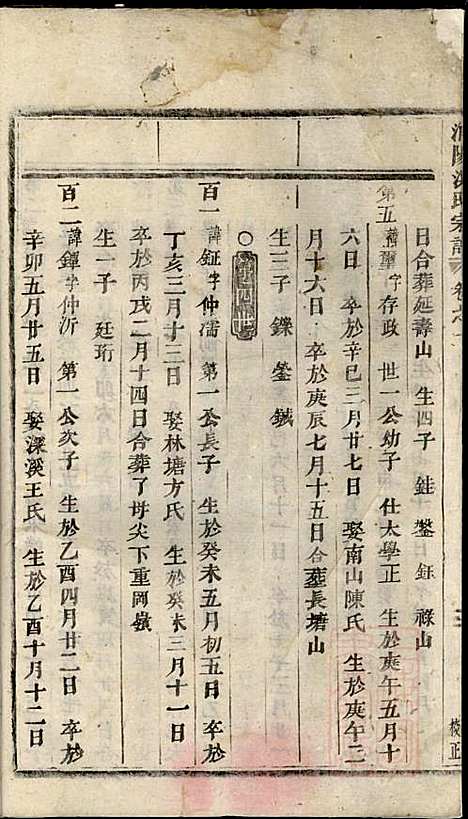 日合葬延壽山 生四子 銈 鏊 鉦 祿山
第五 諱 字存政 世一公幼子 仕太學正 生於庚午五月十
六日 卒於辛巳三月廿七日 娶南山陳氏 生於庚午二
月十六日 卒於庚辰七月十五日合葬長塘山
生三子 鑠 鋈 鉞
○
百一 諱鉦字仲濡 第一公長子 生於癸未五月初五日 卒於
丁亥三月十二日 娶林塘方氏 生於癸未三月十一日
卒於丙戌二月十四日合葬了坶尖下重岡嶺
生一子 廷珩
百二 諱鐸字仲沂 第一公次子 生於乙酉四月廿二日 卒於
辛卯五月廿五日 娶深溪王氏 生於乙酉十月十二日